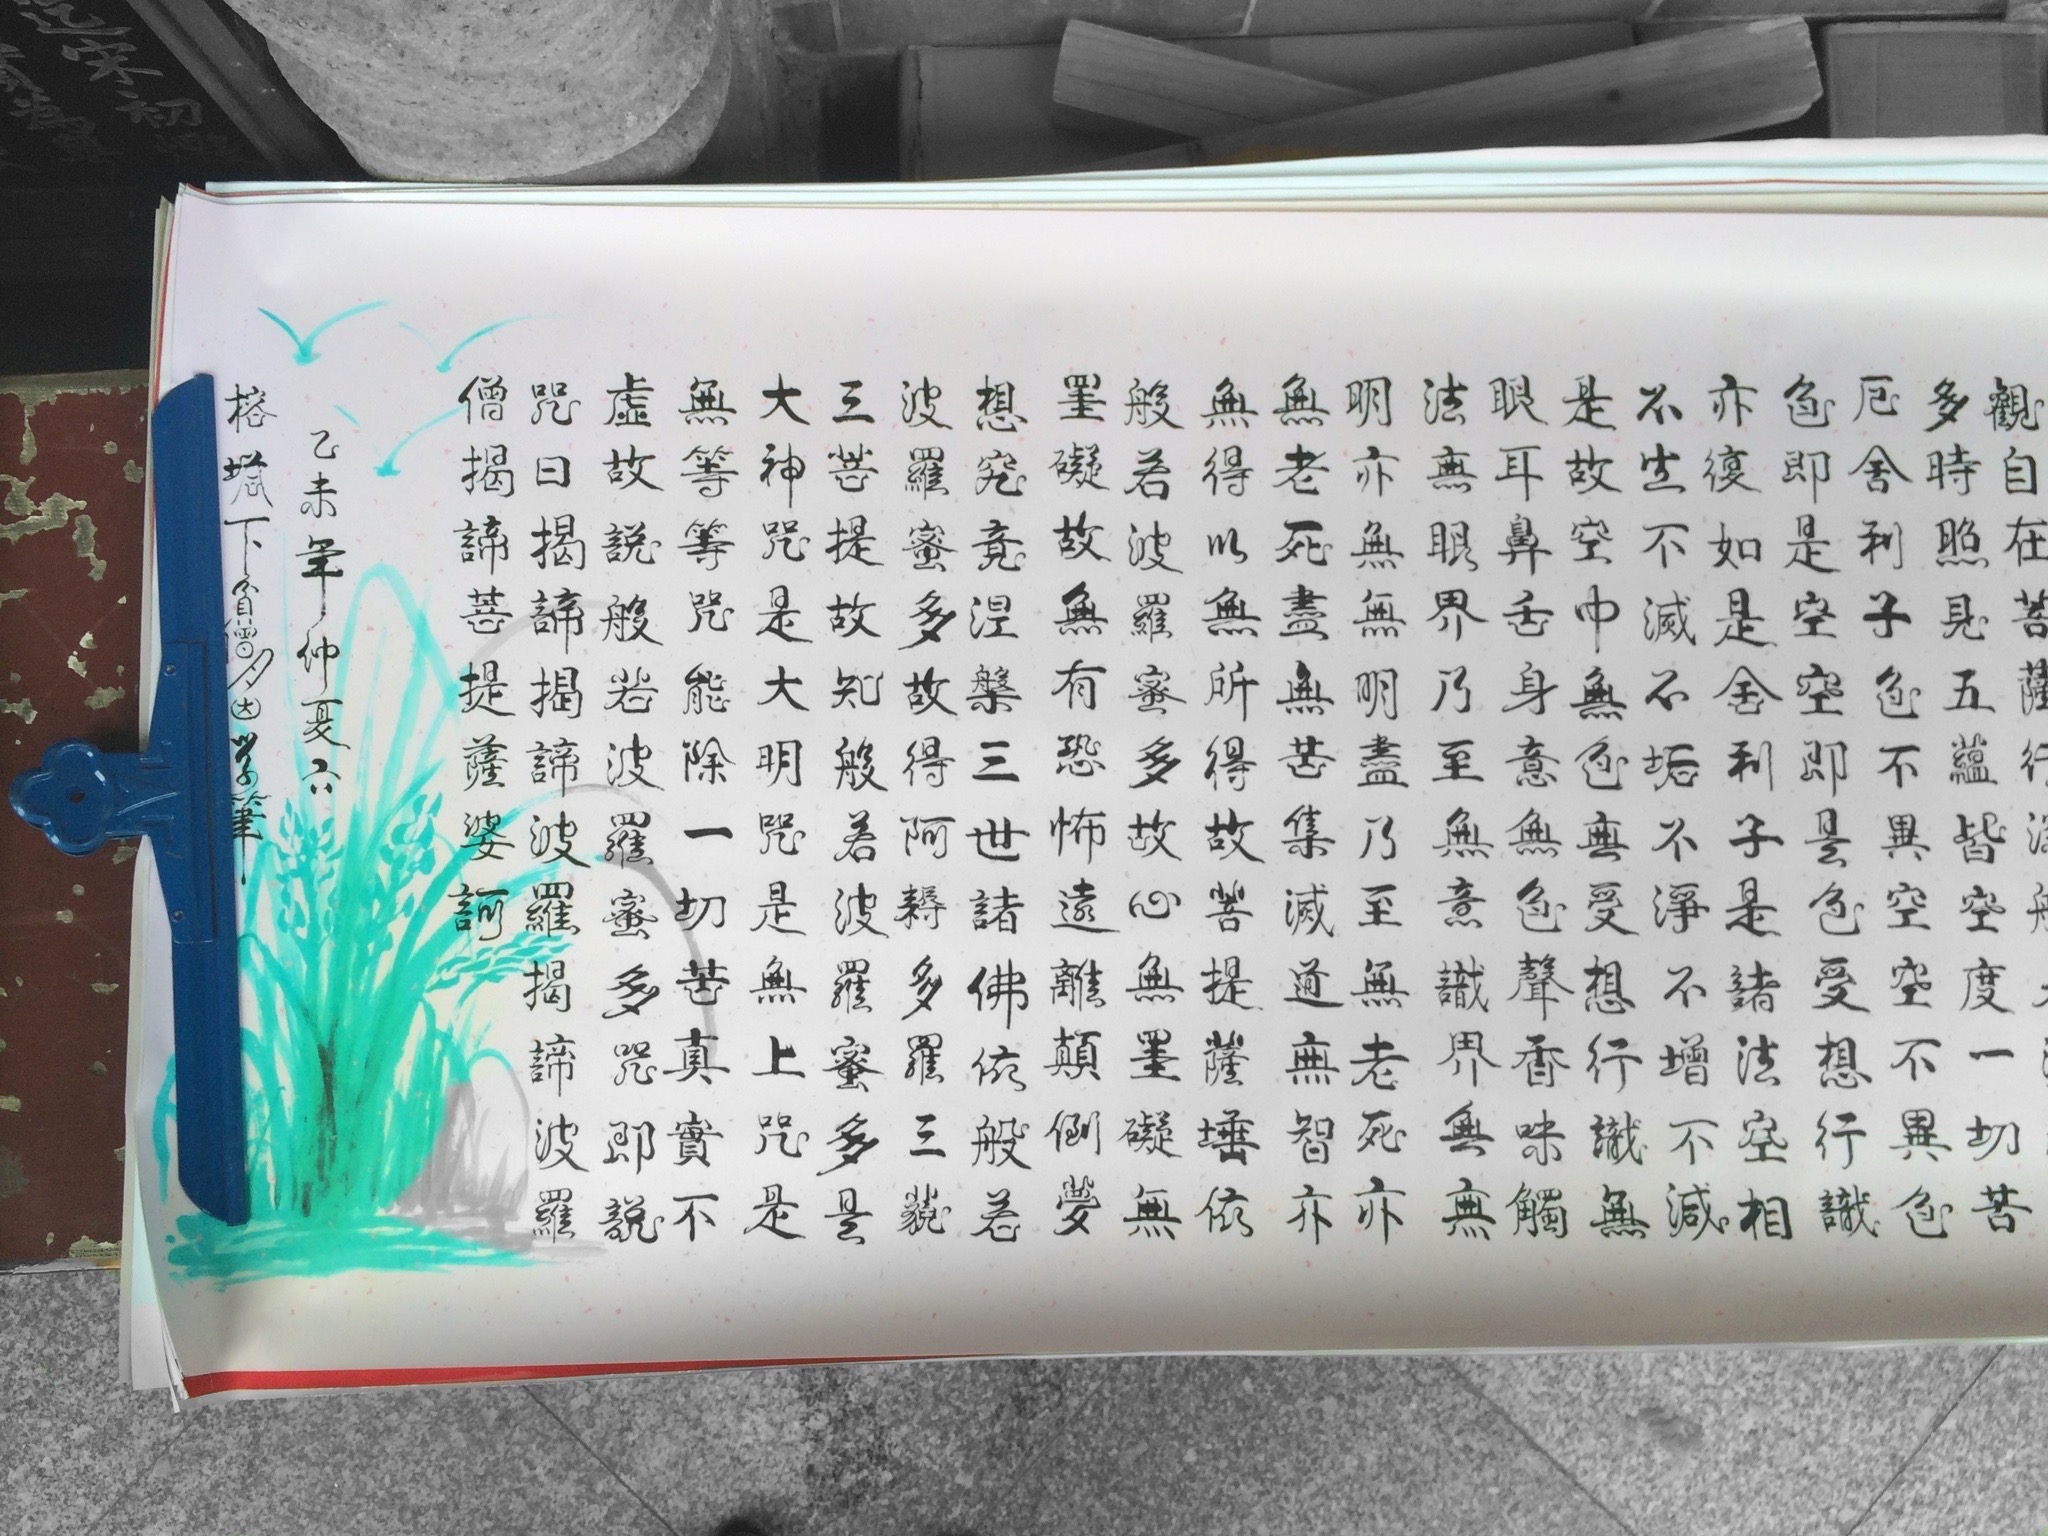 觀自在菩薩行深般
多時照見五蘊皆空度一切苦
厄舍利子色不異空空不異色
色即是空空即是色受想行識
亦復如是舍利子是諸法空相
不生不滅不垢不淨不增不減
是故空中無色無受想行識無
眼耳鼻舌身意無色聲香味觸
法無眼界乃至無意識界無無
明亦無無明盡乃至無老死亦
無老死盡無苦集滅道無智亦
無得以無所得故菩提薩埵依
般若波羅蜜多故心無罣礙無
罣礙故無有恐怖遠離顛倒夢
想究竟涅槃三世諸佛依般若
波羅蜜多故得阿耨多羅三藐
三菩提故知般若波羅蜜多是
大神咒是大明咒是無上咒是
無等等咒能除一切苦真實不
虛故說般若波羅蜜多咒即說
咒曰揭諦揭諦波羅揭諦波羅
僧揭諦菩提薩婆訶
乙未年仲夏六
榕下貧僧筆